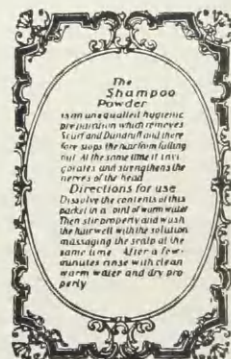 The
Shampoo
Powder
is an unequalled hygienic
preparation which removes
Scurf and Dandruff and there
fore stops the hair from falling
out At the same time it invi
gorates and strengthens the
nerves of the head
Directions for use
Dissolve the contents of this
packet in a pint of warm water
Then stir properly and wash
the hair well with the solution
massaging the scalp at the
same time After a few
minutes rinse with clean
warm water and dry pro
perly